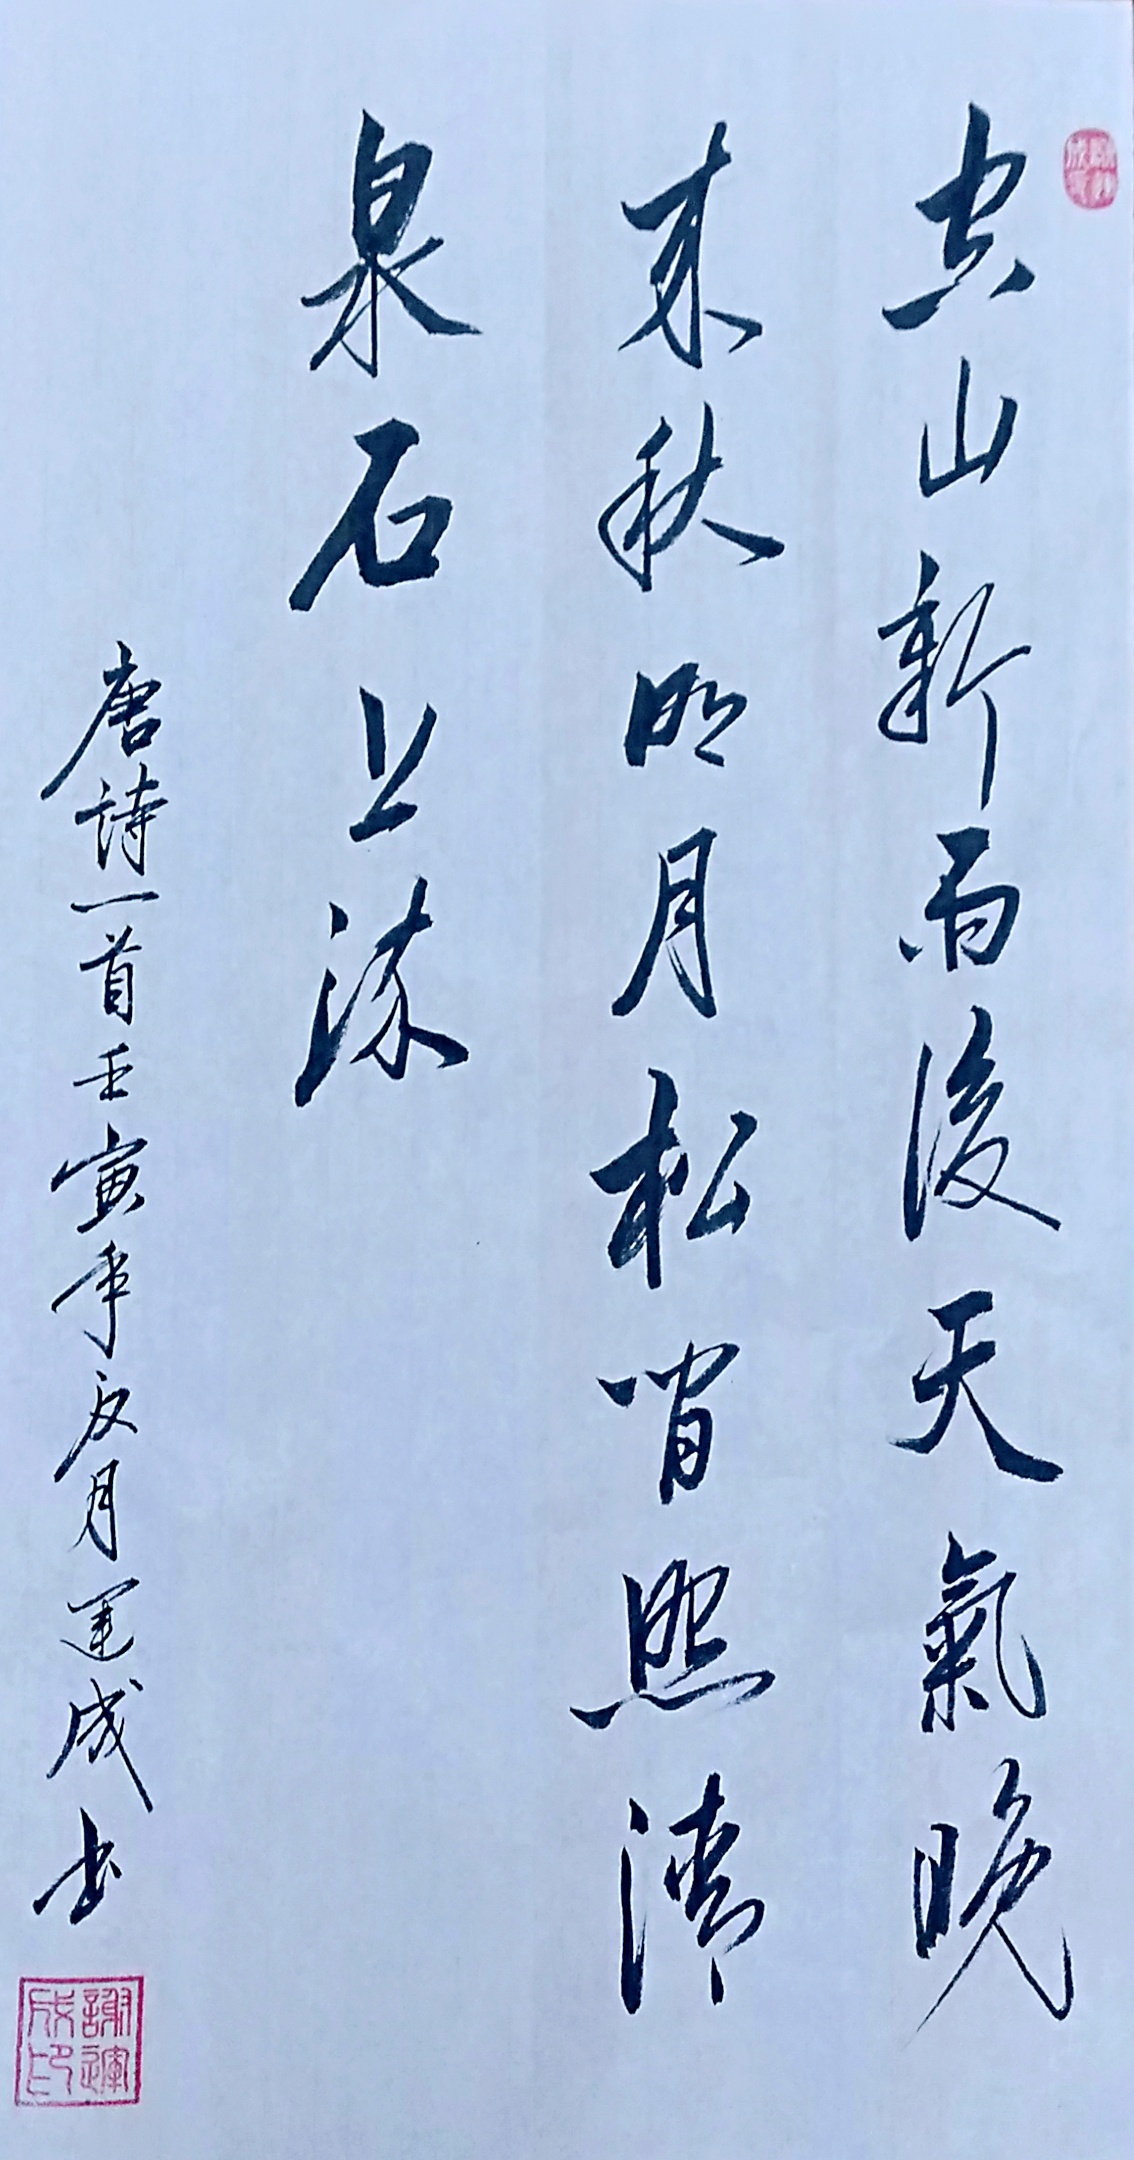 空山新雨後天氣晚
來秋明月松間照清
泉石上流
唐詩一首壬寅年夏月運成书
謝運成印